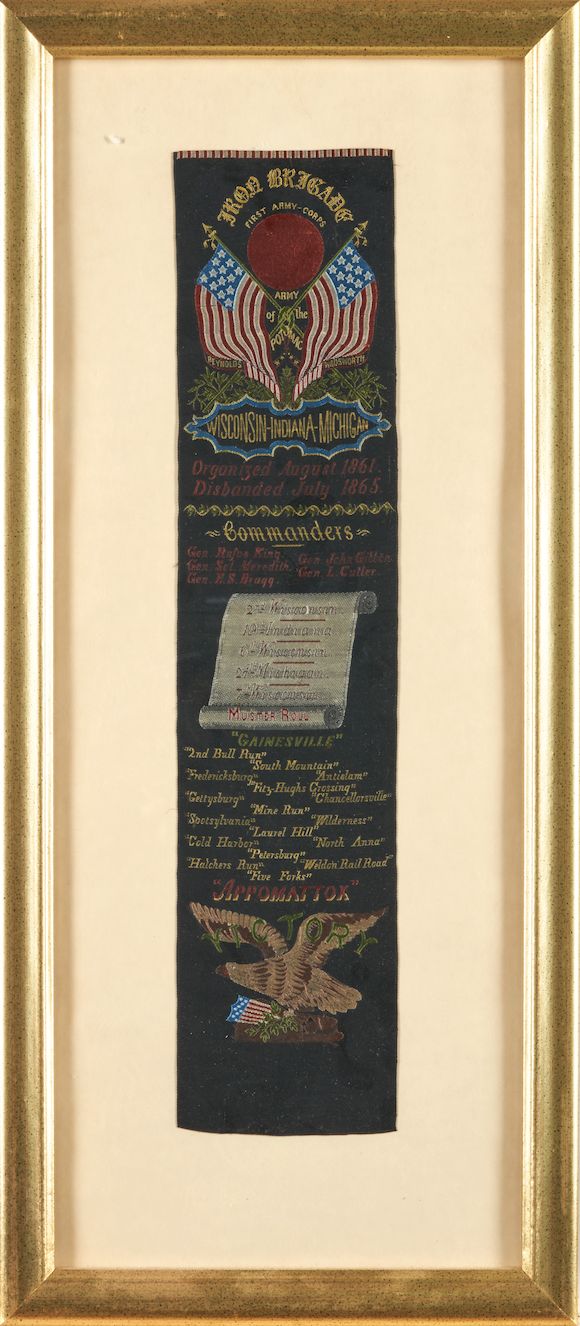 IRON BRIGADE
FIRST ARMY-CORPS
ARMY
of the
POTOMAC
REYNOLDS WADSWORTH
WISCONSIN-INDIANA-MICHIGAN
Organized August 1861.
Disbanded July 1865.
Commanders
Gen. Rufus King. Gen. John Gibbon
Gen. Sol. Meredith. Gen. L. Cutler.
Gen. E. S. Bragg.
2nd Wisconsin
19th Indiana
6th Wisconsin
24th Michigan
7th Wisconsin
MUSTER ROLL
"GAINESVILLE"
"2nd Bull Run"
"South Mountain"
"Fredericksburg" "Antietam"
"Fitz-Hughs Crossing"
"Gettysburg" "Chancellorsville"
"Mine Run"
"Spotsylvania" "Wilderness"
"Laurel Hill"
"Cold Harbor" "North Anna"
"Petersburg"
"Hatchers Run" "Weldon Rail Road"
"Five Forks"
"APPOMATTOX"
VICTORY